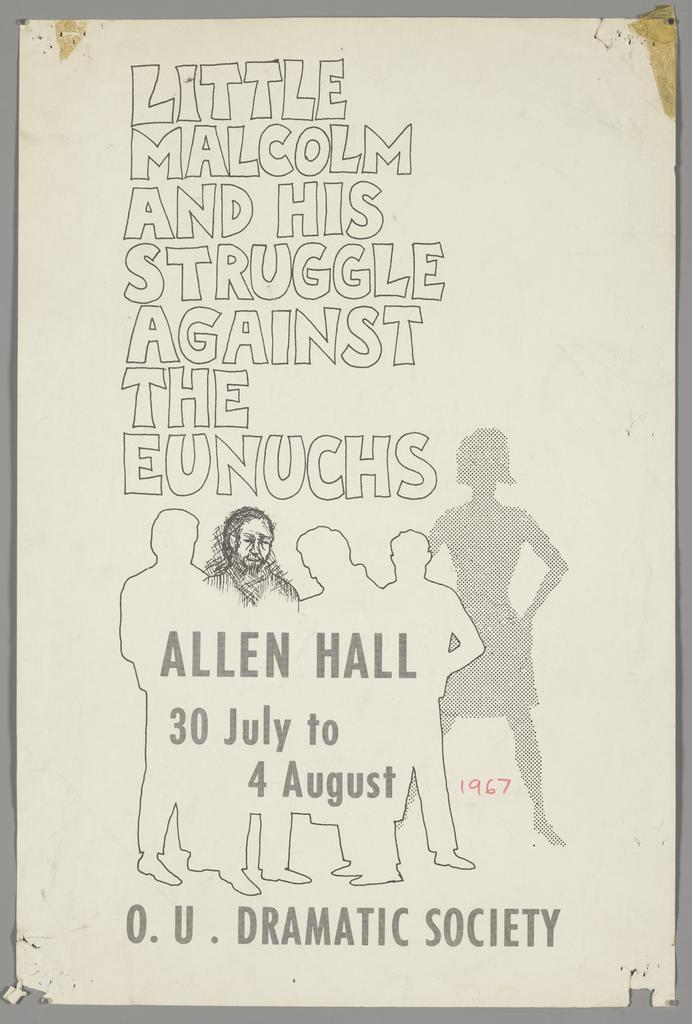 LITTLE
MALCOLM
AND HIS
STRUGGLE
AGAINST
THE
EUNUCHS
ALLEN HALL
30 July to
4 August
1967
O. U. DRAMATIC SOCIETY